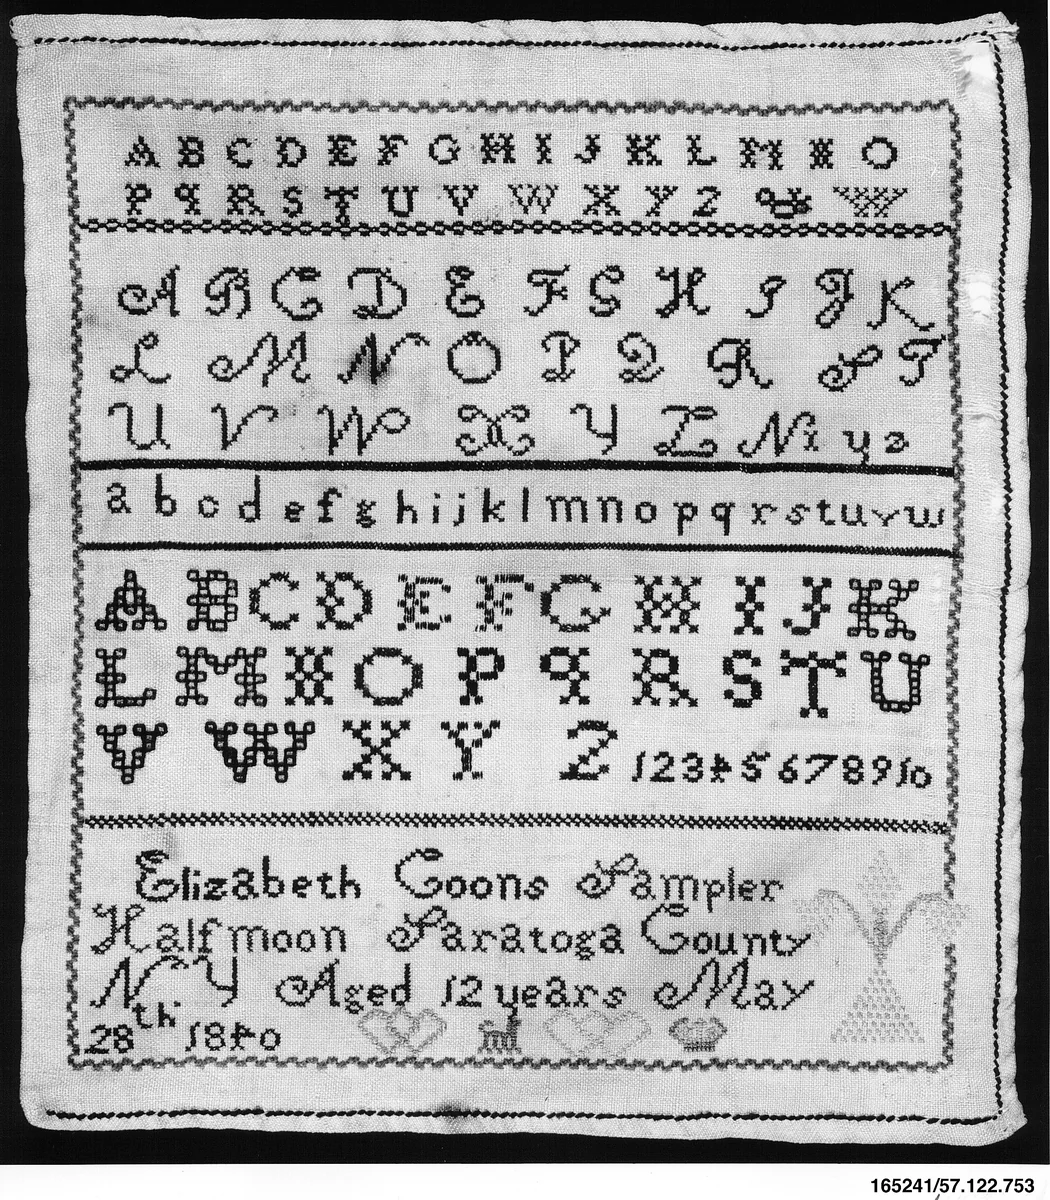 A B C D E F G H I J K L M N O
P q R S T U V W X Y Z
A B C D E F G H I J K
L M N O P Q R S T
U V W X Y Z N x y z
a b c d e f g h i j k l m n o p q r s t u v w
A B C D E F G H I J K
L M N O P q R S T U
V W X Y Z 1 2 3 4 5 6 7 8 9 10
Elizabeth Coons Sampler
Halfmoon Saratoga County
N Y Aged 12 years May
28th 1840
165241/57.122.753